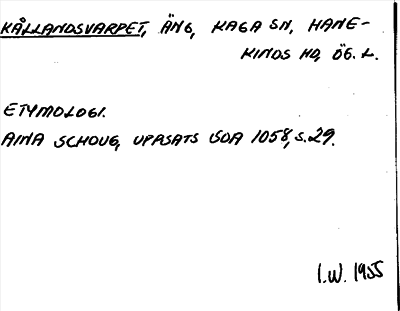 KÅLLANDSVARPET, ÄNG, KAGA SN, HANE-
KINDS HD, ÖG. L.
ETYMOLOGI.
AINA SCHOUG, UPPSATS ULMA 1058, S. 29.
I.W. 1955